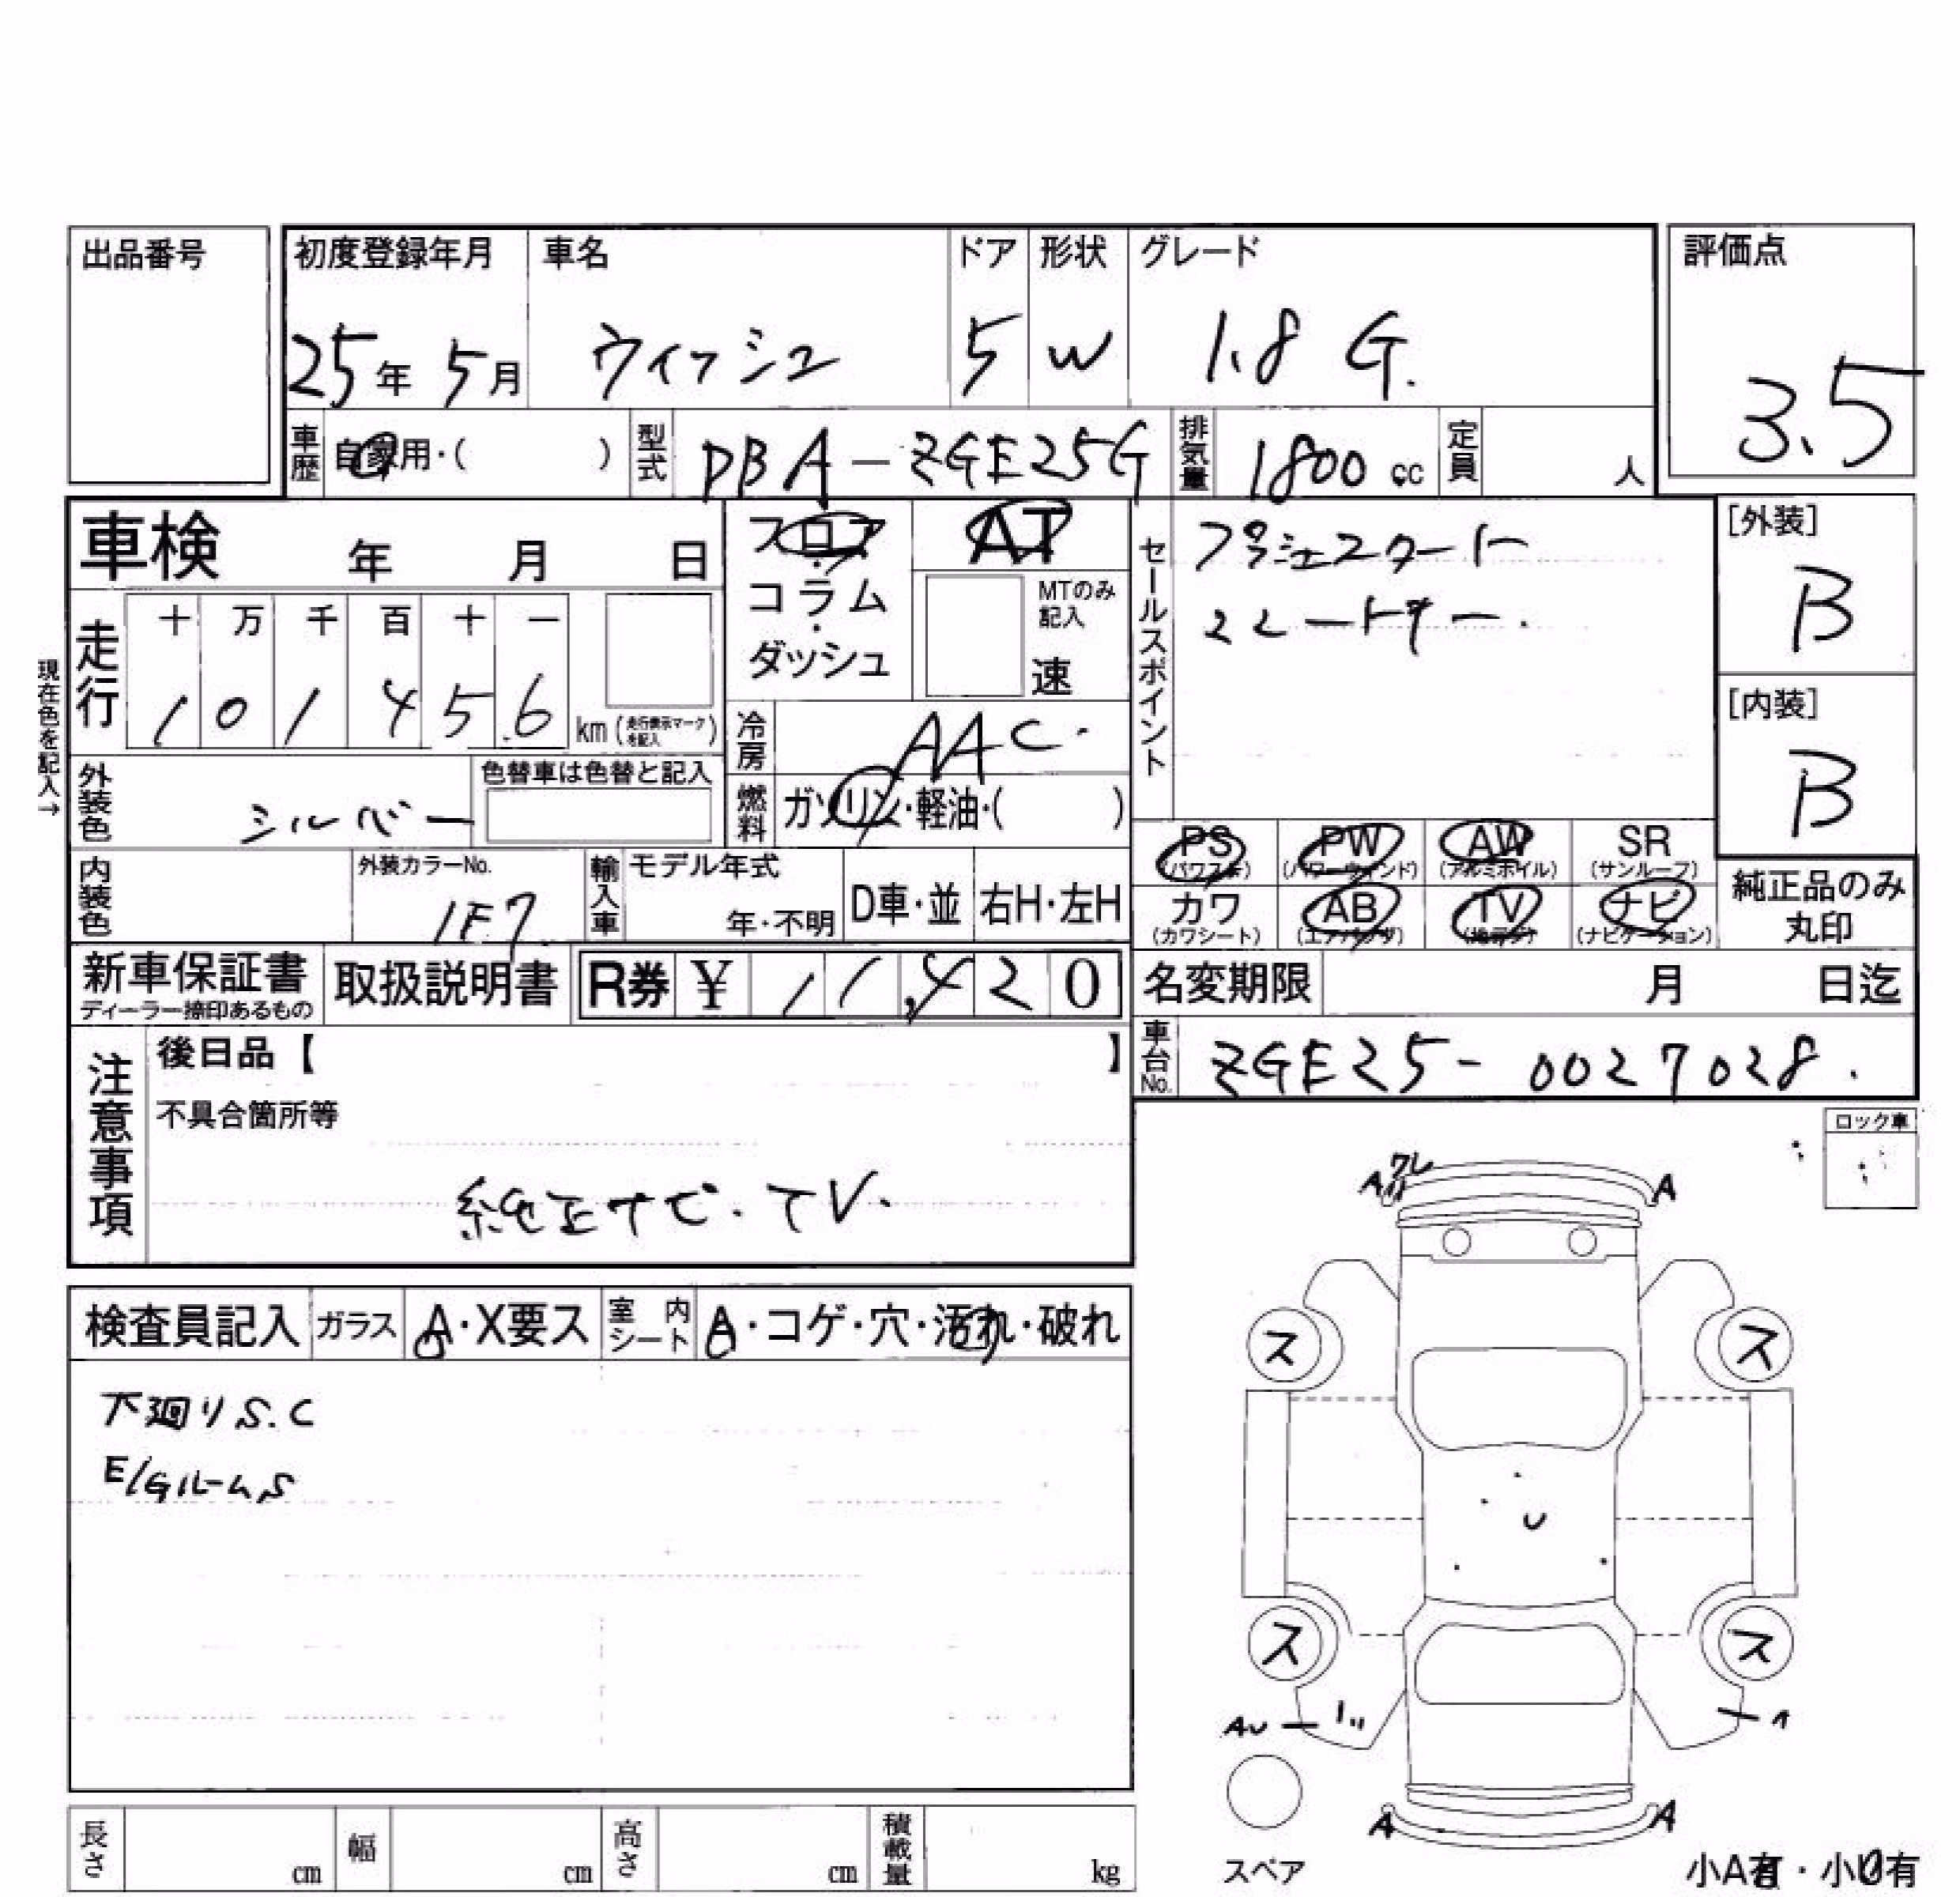 出品番号
初度登録年月 車名 ドア 形状 グレード 評価点
25年 5月 ウィッシュ 5 W 1.8 G. 3.5
車歴 自家用・( ) 型式 DBA-ZGE25G 排気量 1800 cc 定員 人
車検 年 月 日
フロア・コラム・ダッシュ
AT
MTのみ記入
速
セールスポイント
プッシュスタート
スマートキー.
[外装]
B
[内装]
B
現在色を記入→
走行 十 万 千 百 十 一
1 0 1 4 5 6 km (走行表示マークを記入)
冷房 AAC.
外装色 シルバー 色替車は色替と記入
燃料 ガソリン・軽油・( )
内装色 外装カラーNo. 1F7
輸入車 モデル年式 年・不明 D車・並 右H・左H
PS (パワステ) PW (パワーウィンド) AW (アルミホイル) SR (サンルーフ)
カワ (カワシート) AB (エアバッグ) TV ナビ (ナビゲーション)
純正品のみ丸印
新車保証書 ディーラー捺印あるもの 取扱説明書 R券 ¥ 11,420
名変期限 月 日迄
車台No. ZGE25-0027028.
注意事項 後日品【 】
不具合箇所等
純正ナビ. TV.
ロック車
検査員記入 ガラス A・X要ス 室内シート A・コゲ・穴・汚れ・破れ
下廻りS.C
E/GルームS
A ワレ A
ス ス
U
ス ス
AU
A A
スペア
小A有・小U有
長さ cm 幅 cm 高さ cm 積載量 kg